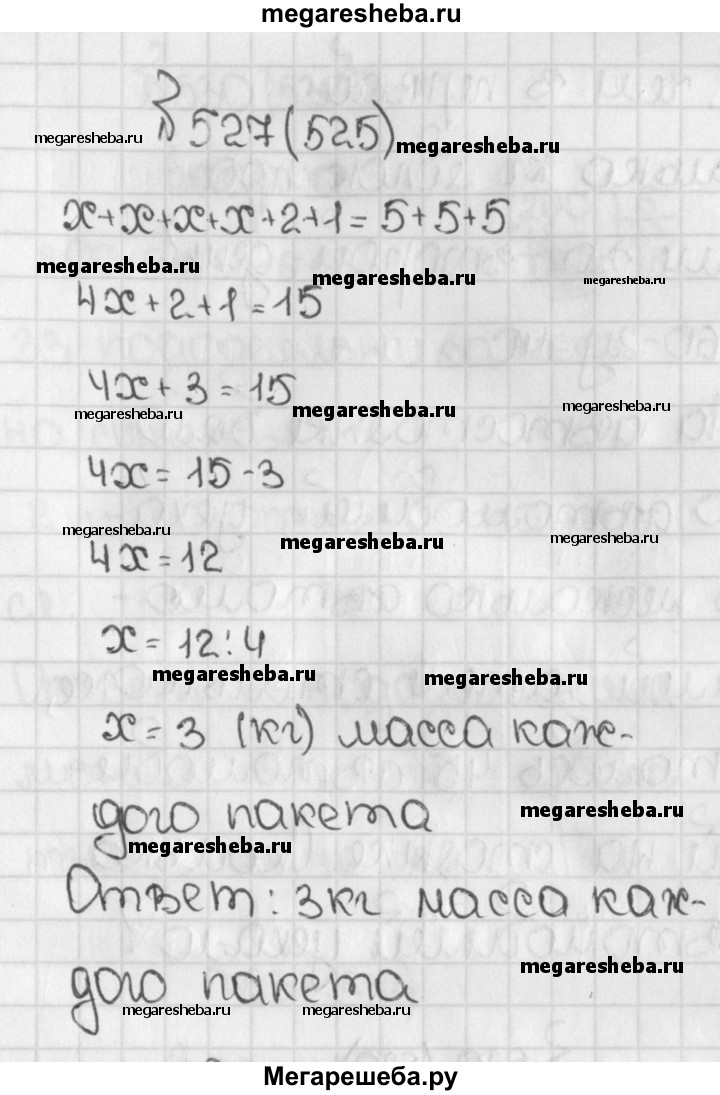 megaresheba.ru
№ 527 (525)
megaresheba.ru
megaresheba.ru
x+x+x+x+2+1=5+5+5
megaresheba.ru
megaresheba.ru
megaresheba.ru
4x+2+1=15
4x+3=15
megaresheba.ru
megaresheba.ru
megaresheba.ru
4x=15-3
megaresheba.ru
megaresheba.ru
megaresheba.ru
4x=12
x=12:4
megaresheba.ru
megaresheba.ru
x=3 (кг) масса каж-
дого пакета
megaresheba.ru
megaresheba.ru
Ответ: 3кг масса каж-
дого пакета
megaresheba.ru
megaresheba.ru
megaresheba.ru
Мегарешеба.ру